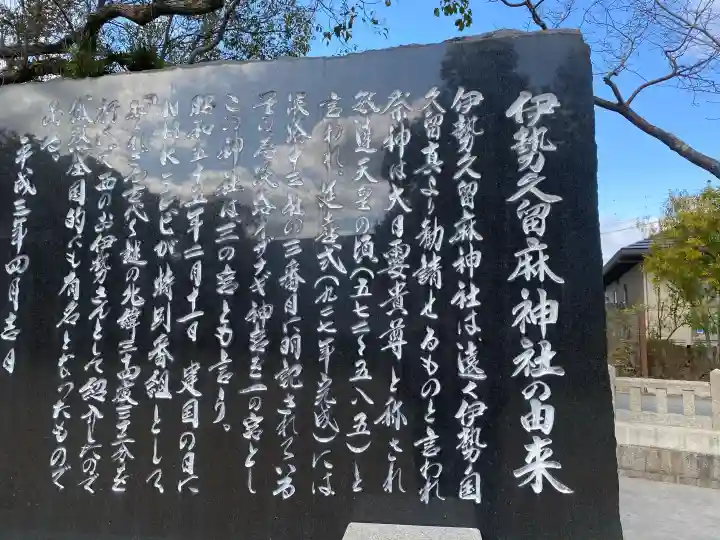 伊勢久留麻神社の由来
伊勢久留麻神社は、遠く伊勢の国
久留真より勧請せるものと言われ
祭神は大日孁貴尊と称され
敏達天皇の頃(五七二〜五八五)と
言われ、延喜式(九二七年完成)には
淡路十三社の三番目に明記されて
一の宮としこの神社は三の宮とも言う。
昭和五十五年二月十一日 建国の日に
NHKテレビが特別番組として
太陽の道北緯三十四度三十二分を
西のお伊勢さんとして紹介したので
俄然全国的にも有名となったもので
ある。
平成三年四月吉日